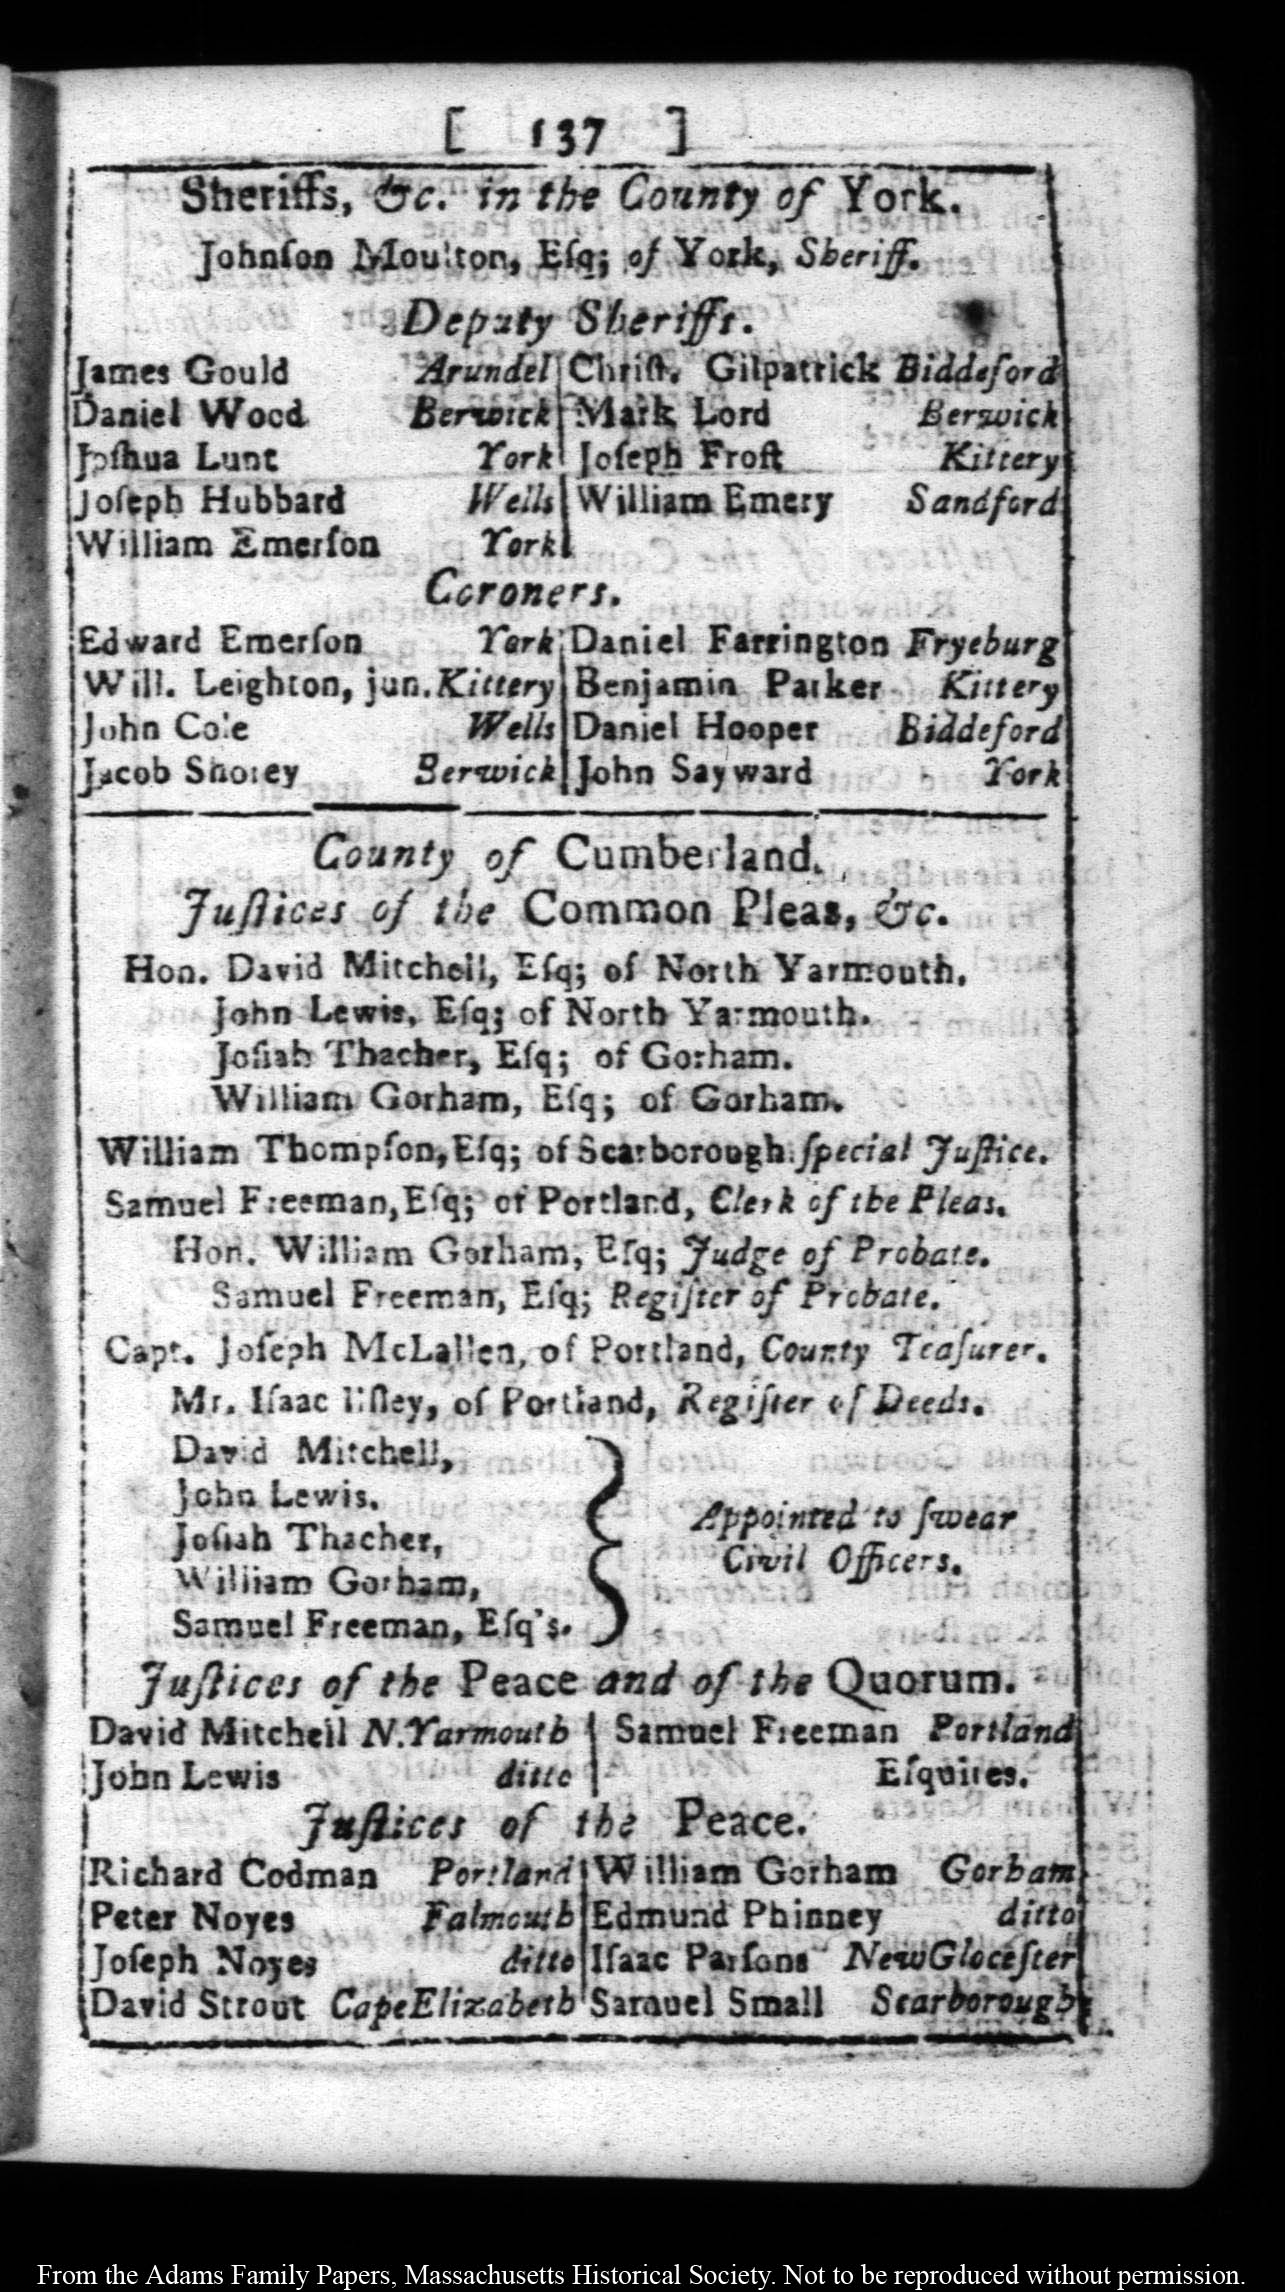 [ 137 ]
Sheriffs, &c. in the County of York.
Johnſon Moulton, Eſq; of York, Sheriff.
Deputy Sheriffs.
James Gould Arundel | Chriſt. Gilpatrick Biddeford
Daniel Wood Berwick | Mark Lord Berwick
Joſhua Lunt York | Joſeph Froſt Kittery
Joſeph Hubbard Wells | William Emery Sandford
William Emerſon York
Coroners.
Edward Emerſon York | Daniel Farrington Fryeburg
Will. Leighton, jun. Kittery | Benjamin Parker Kittery
John Cole Wells | Daniel Hooper Biddeford
Jacob Shorey Berwick | John Sayward York
County of Cumberland.
Juſtices of the Common Pleas, &c.
Hon. David Mitchell, Eſq; of North Yarmouth.
John Lewis, Eſq; of North Yarmouth.
Joſiah Thacher, Eſq; of Gorham.
William Gorham, Eſq; of Gorham.
William Thompſon, Eſq; of Scarborough. ſpecial Juſtice.
Samuel Freeman, Eſq; of Portland, Clerk of the Pleas.
Hon. William Gorham, Eſq; Judge of Probate.
Samuel Freeman, Eſq; Regiſter of Probate.
Capt. Joſeph McLallen, of Portland, County Teaſurer.
Mr. Iſaac Ilſley, of Portland, Regiſter of Deeds.
David Mitchell,
John Lewis,
Joſiah Thacher,
William Gorham,
Samuel Freeman, Eſq's.
Appointed to ſwear
Civil Officers.
Juſtices of the Peace and of the Quorum.
David Mitchell N. Yarmouth | Samuel Freeman Portland
John Lewis ditto | Eſquires.
Juſtices of the Peace.
Richard Codman Portland | William Gorham Gorham
Peter Noyes Falmouth | Edmund Phinney ditto
Joſeph Noyes ditto | Iſaac Parſons New Gloceſter
David Strout Cape Elizabeth | Samuel Small Scarborough
From the Adams Family Papers, Massachusetts Historical Society. Not to be reproduced without permission.